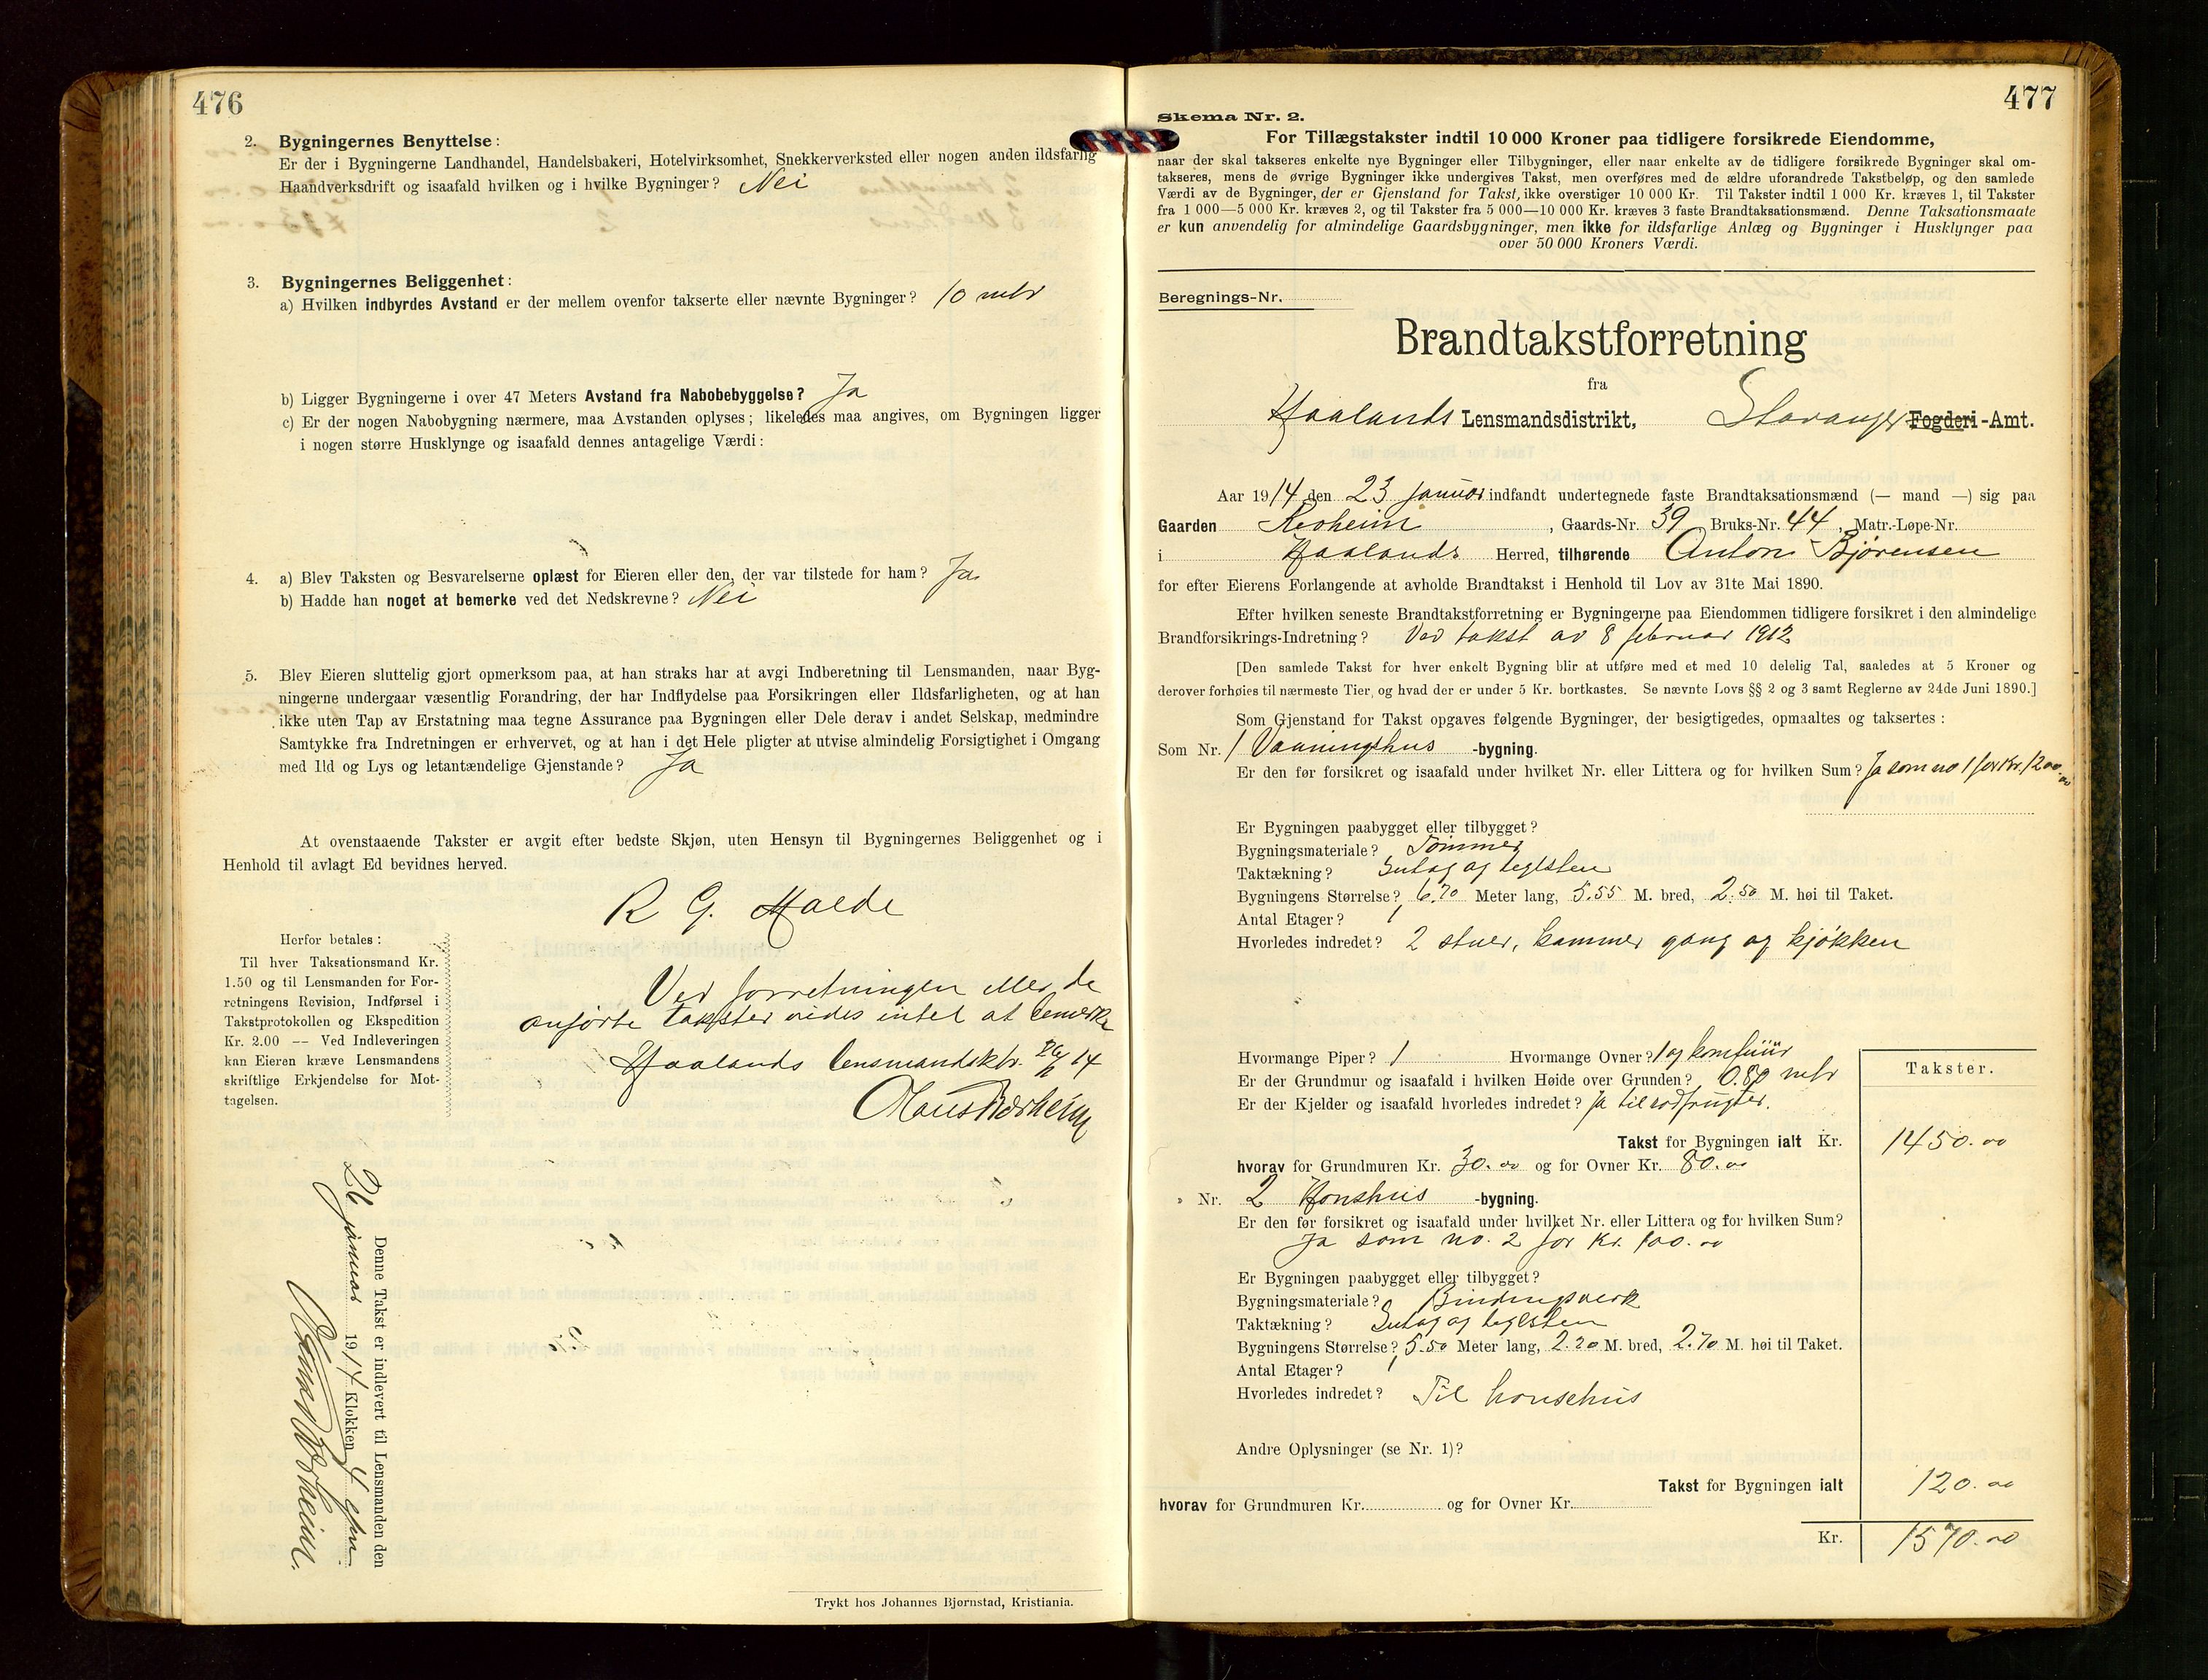 476
2. Bygningernes Benyttelse:
Er der i Bygningerne Landhandel, Handelsbakeri, Hotelvirksomhet, Snekkerverksted eller nogen anden ildsfarlig
Haandverksdrift og isaafald hvilken og i hvilke Bygninger? Nei
3. Bygningernes Beliggenhet:
a) Hvilken indbyrdes Avstand er der mellem ovenfor takserte eller nævnte Bygninger? 10 mtr
b) Ligger Bygningerne i over 47 Meters Avstand fra Nabobebyggelse? Ja
c) Er der nogen Nabobygning nærmere, maa Avstanden oplyses; likeledes maa angives, om Bygningen ligger
i nogen større Husklynge og isaafald dennes antagelige Værdi:
4. a) Blev Taksten og Besvarelserne oplæst for Eieren eller den, der var tilstede for ham? Ja
b) Hadde han noget at bemerke ved det Nedskrevne? Nei
5. Blev Eieren sluttelig gjort opmerksom paa, at han straks har at avgi Indberetning til Lensmanden, naar Byg-
ningerne undergaar væsentlig Forandring, der har Indflydelse paa Forsikringen eller Ildsfarligheten, og at han
ikke uten Tap av Erstatning maa tegne Assurance paa Bygningen eller Dele derav i andet Selskap, medmindre
Samtykke fra Indretningen er erhvervet, og at han i det Hele pligter at utvise almindelig Forsigtighet i Omgang
med Ild og Lys og letantændelige Gjenstande? Ja
At ovenstaaende Takster er avgit efter bedste Skjøn, uten Hensyn til Bygningernes Beliggenhet og i
Henhold til avlagt Ed bevidnes herved.
R G. Malde
Herfor betales:
Til hver Taksationsmand Kr.
1.50 og til Lensmanden for For-
retningens Revision, Indførsel i
Takstprotokollen og Ekspedition
Kr. 2.00 -- Ved Indleveringen
kan Eieren kræve Lensmandens
skriftlige Erkjendelse for Mot-
tagelsen.
Ved forretningen eller de
anførte takster vides intet at bemerke
Haalands lensmandsktr. 26/1 14
Denne Takst er indlevert til Lensmanden den
26 januar 1914 Klokken 4 efm
Trykt hos Johannes Bjørnstad, Kristiania.
477
Skema Nr. 2.
For Tillægstakster indtil 10 000 Kroner paa tidligere forsikrede Eiendomme,
naar der skal takseres enkelte nye Bygninger eller Tilbygninger, eller naar enkelte av de tidligere forsikrede Bygninger skal om-
takseres, mens de øvrige Bygninger ikke undergives Takst, men overføres med de ældre uforandrede Takstbeløp, og den samlede
Værdi av de Bygninger, der er Gjenstand for Takst, ikke overstiger 10 000 Kr. Til Takster indtil 1 000 Kr. kræves 1, til Takster
fra 1 000—5 000 Kr. kræves 2, og til Takster fra 5 000—10 000 Kr. kræves 3 faste Brandtaksationsmænd. Denne Taksationsmaate
er kun anvendelig for almindelige Gaardsbygninger, men ikke for ildsfarlige Anlæg og Bygninger i Husklynger paa
over 50 000 Kroners Værdi.
Beregnings-Nr.
Brandtakstforretning
fra
Haalands Lensmandsdistrikt, Stavanger Fogderi-Amt.
Aar 1914 den 23 januar indfandt undertegnede faste Brandtaksationsmænd (— mand —) sig paa
Gaarden Roheim, Gaards-Nr. 39 Bruks-Nr. 44, Matr.-Løpe-Nr.
i Haalands Herred, tilhørende Anton Bjørensen
for efter Eierens Forlangende at avholde Brandtakst i Henhold til Lov av 31te Mai 1890.
Efter hvilken seneste Brandtakstforretning er Bygningerne paa Eiendommen tidligere forsikret i den almindelige
Brandforsikrings-Indretning? Ved takst av 8 februar 1912
[Den samlede Takst for hver enkelt Bygning blir at utføre med et med 10 delelig Tal, saaledes at 5 Kroner og
derover forhøies til nærmeste Tier, og hvad der er under 5 Kr. bortkastes. Se nævnte Lovs §§ 2 og 3 samt Reglerne av 24de Juni 1890.]
Som Gjenstand for Takst opgaves følgende Bygninger, der besigtigedes, opmaaltes og taksertes:
Som Nr. 1 Vaaningshus -bygning.
Er den før forsikret og isaafald under hvilket Nr. eller Littera og for hvilken Sum? Ja som no 1 for Kr. 1200.00
Er Bygningen paabygget eller tilbygget?
Bygningsmateriale? Tømmer
Taktækning? Sutag og teglsten
Bygningens Størrelse? 6.70 Meter lang, 5.55 M. bred, 2.50 M. høi til Taket.
Antal Etager? 1
Hvorledes indredet? 2 stuer, kammer gang og kjøkken
Hvormange Piper? 1 Hvormange Ovner? 1 og komfuur
Er der Grundmur og isaafald i hvilken Høide over Grunden? 0.80 mtr
Er der Kjelder og isaafald hvorledes indredet? Ja til rodfrugter.
Takster.
Takst for Bygningen ialt Kr. 1450.00
hvorav for Grundmuren Kr. 30.00 og for Ovner Kr. 80.00
» Nr. 2 Hønshus -bygning.
Er den før forsikret og isaafald under hvilket Nr. eller Littera og for hvilken Sum?
Ja som no. 2 for Kr. 100.00
Er Bygningen paabygget eller tilbygget?
Bygningsmateriale? Bindingsverk
Taktækning? Sutag og teglsten
Bygningens Størrelse? 5.50 Meter lang, 2.20 M. bred, 2.70 M. høi til Taket.
Antal Etager? 1
Hvorledes indredet? Til hønsehus
Andre Oplysninger (se Nr. 1)?
Takst for Bygningen ialt 120.00
hvorav for Grundmuren Kr. og for Ovner Kr.
Kr. 1570.00